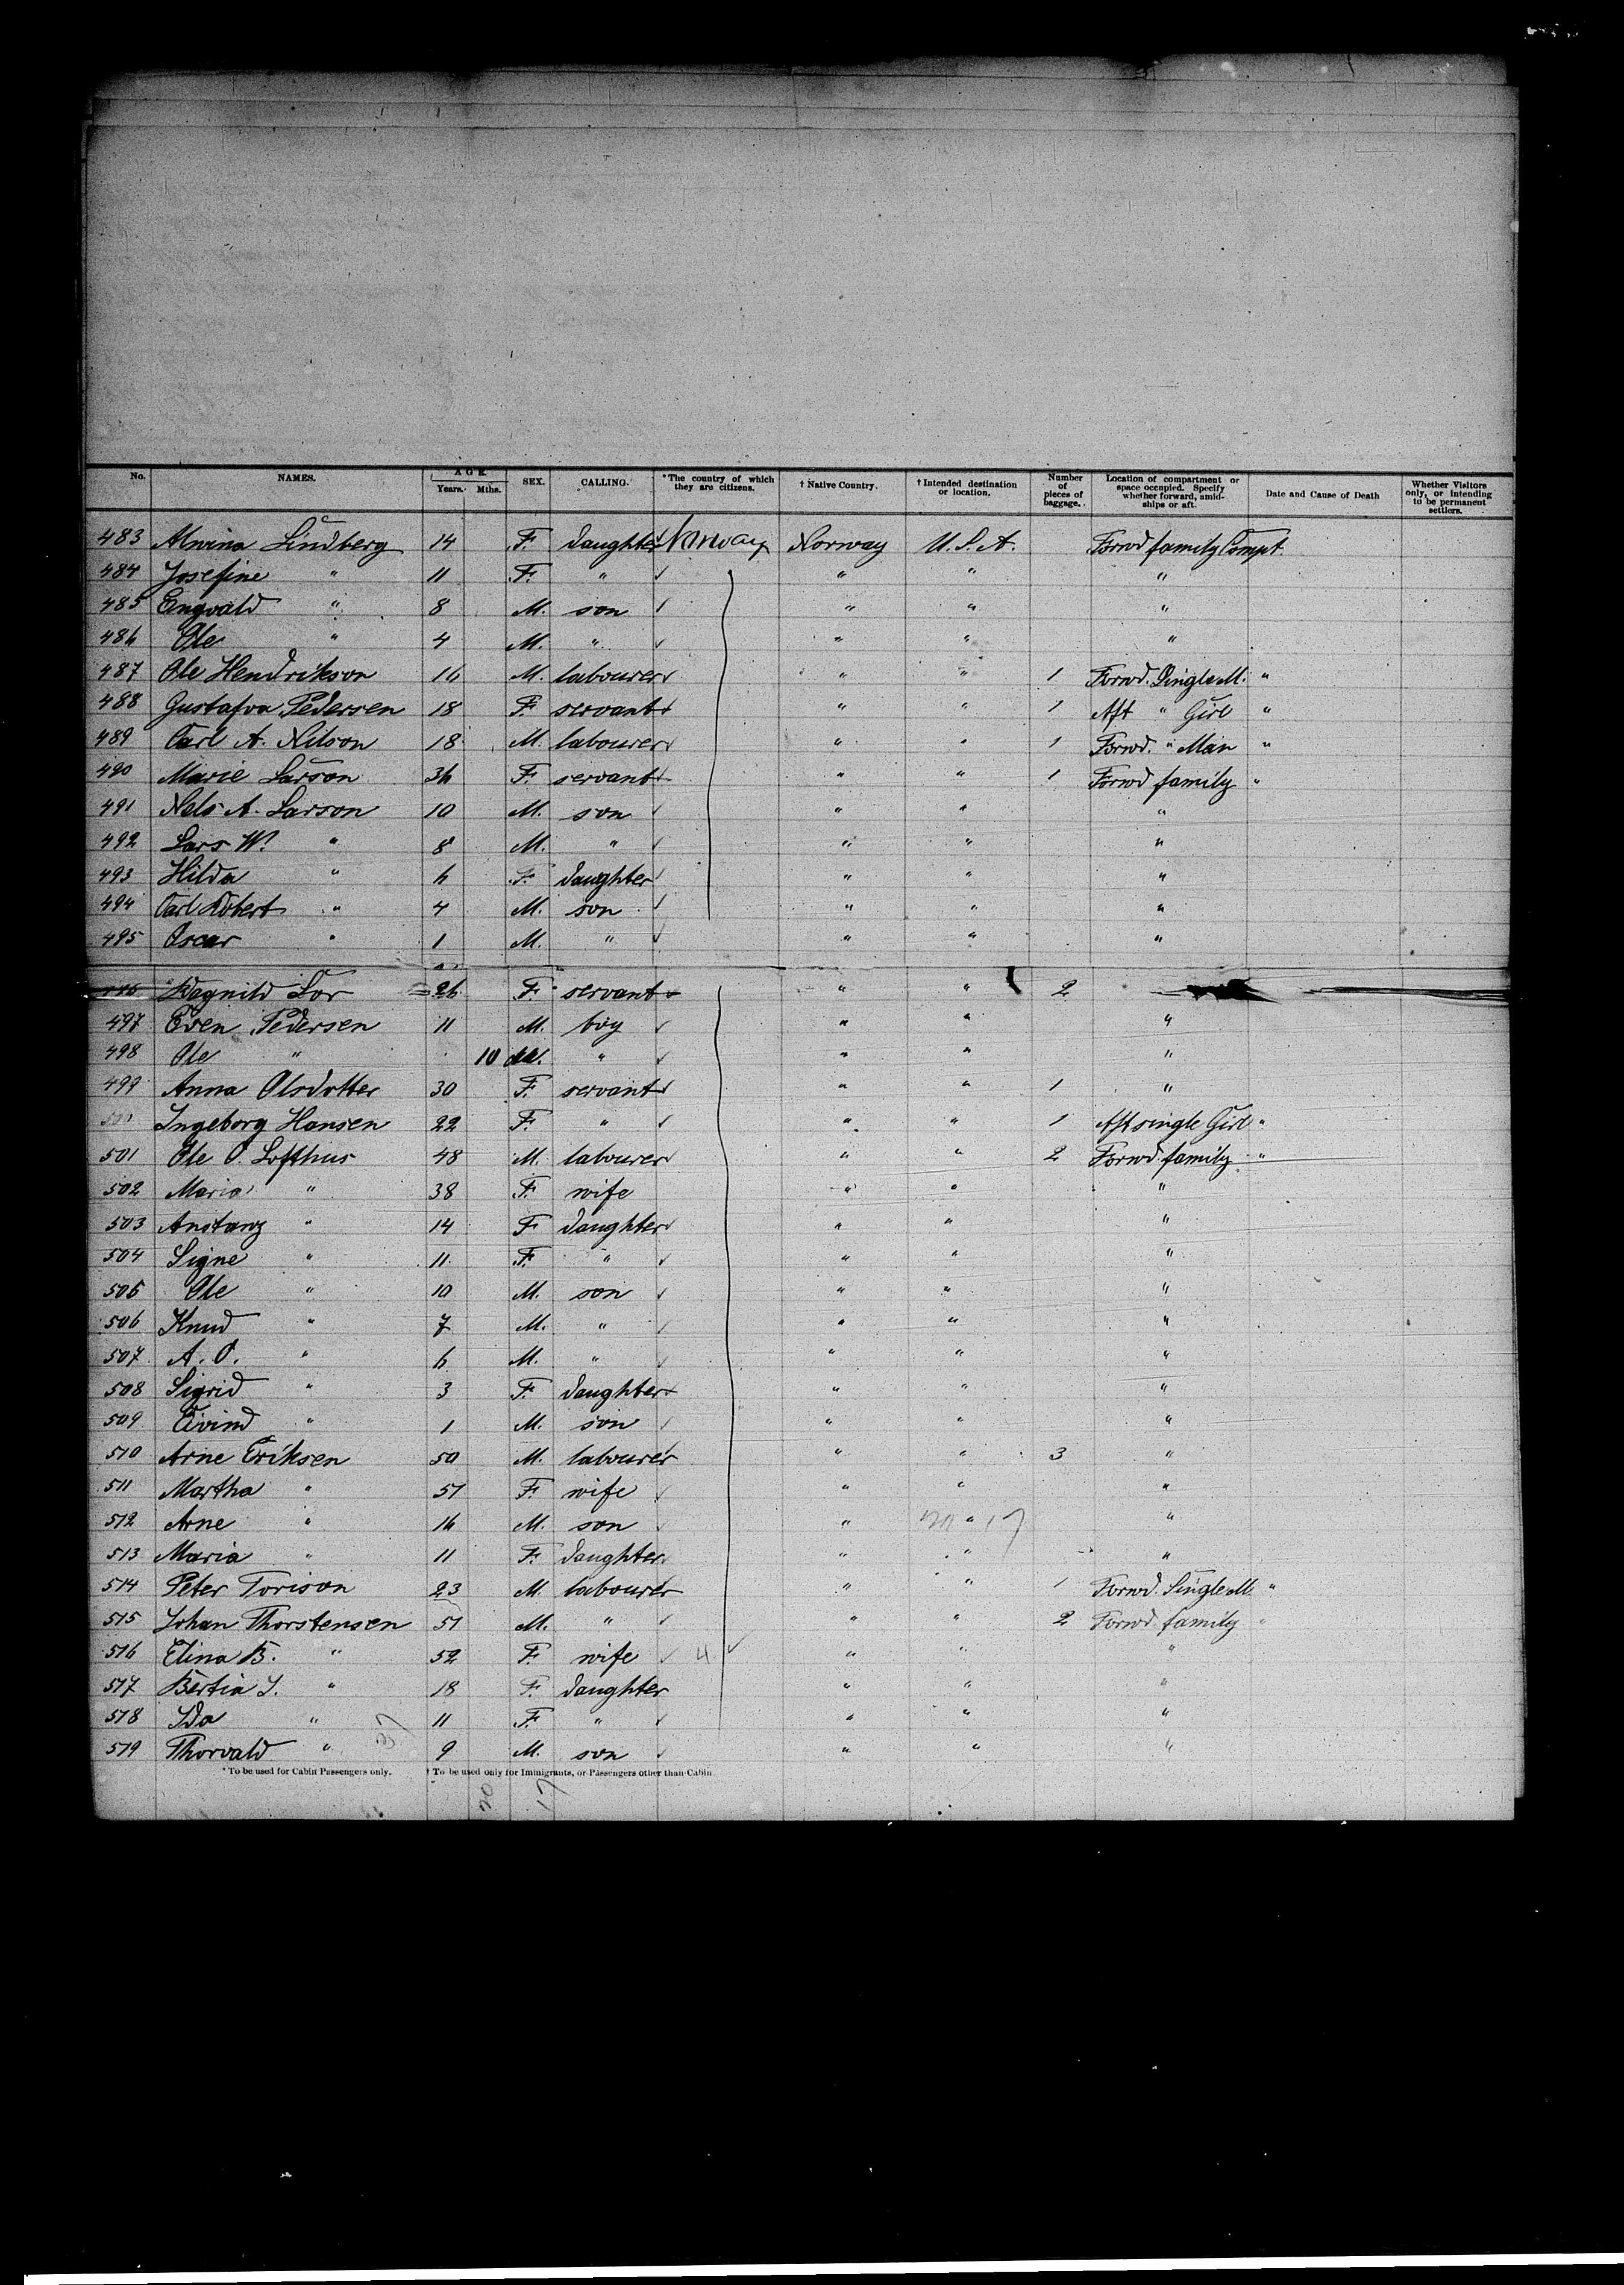 No. NAMES. AGE. Years. Mths. SEX. CALLING. *The country of which they are citizens. † Native Country. † Intended destination or location. Number of pieces of baggage. Location of compartment or space occupied. Specify whether forward, amidships or aft. Date and Cause of Death Whether Visitors only, or intending to be permanent settlers.
483 Alvina Lindberg 14 F. daughter Norway Norway U.S.A. Forwd family Compt.
484 Josefine " 11 F. " " " "
485 Engvald " 8 M. son " " "
486 Ole " 4 M. " " " "
487 Ole Hendrikson 16 M. labourer " " 1 Forwd. Single M. "
488 Gustafva Pedersen 18 F. servant " " 1 Aft " Girl "
489 Carl A. Nilson 18 M. labourer " " 1 Forwd. " Man "
490 Marie Larson 36 F. servant " " 1 Forwd family "
491 Nels A. Larson 10 M. son " " "
492 Lars W. " 8 M. " " " "
493 Hilda " 6 F. daughter " " "
494 Carl Robert " 4 M. son " " "
495 Oscar " 1 M. " " " "
Ragnild 26 F. servant " " 2
497 Even Pedersen 11 M. boy " " "
498 Ole " 10 M. " " " "
499 Anna Olsdotter 30 F. servant " " 1 "
500 Ingeborg Hansen 22 F. " " " 1 Aft single Girl "
501 Ole O. Lofthus 48 M. labourer " " 2 Forwd. family "
502 Maria " 38 F. wife " " "
503 " 14 F. daughter " " "
504 Signe " 11 F. " " " "
505 Ole " 10 M. son " " "
506 Knud " 7 M. " " " "
507 A. O. " 6 M. " " " "
508 Sigrid " 3 F. daughter " " "
509 Eivind " 1 M. son " " "
510 Arne Eriksen 50 M. labourer " " 3 "
511 Martha " 51 F. wife " " "
512 Arne " 16 M. son " " 17 "
513 Maria " 11 F. daughter " " "
514 Peter Torison 23 M. labourer " " 1 Forwd. Single M. "
515 Johan Thorstensen 51 M. " " " 2 Forwd. family "
516 Elina B. " 52 F. wife 4 " " "
517 Bertia J. " 18 F. daughter " " "
518 Ida " 11 F. " " " "
519 Thorvald " 9 M. son " " "
37
* To be used for Cabin Passengers only. † To be used only for Immigrants, or Passengers other than Cabin
20 17